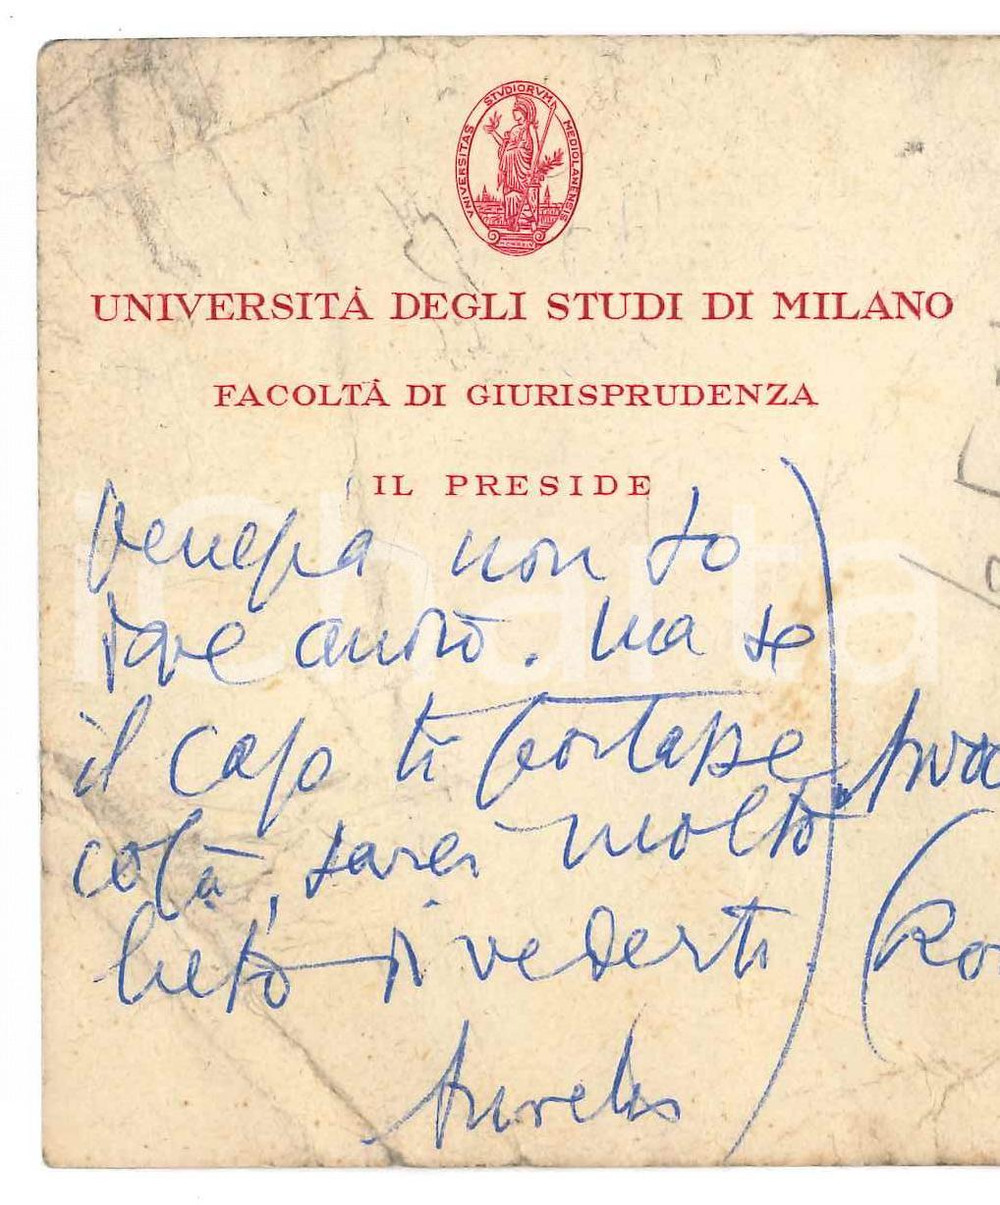 UNIVERSITAS STVDIORVM MEDIOLANENSIS
UNIVERSITÀ DEGLI STUDI DI MILANO
FACOLTÀ DI GIURISPRUDENZA
IL PRESIDE
non so
dove andrò. Ma se
il caso ti portasse
colà, sarei molto
lieto di vederti
(Ro
Aurelio
iCharta